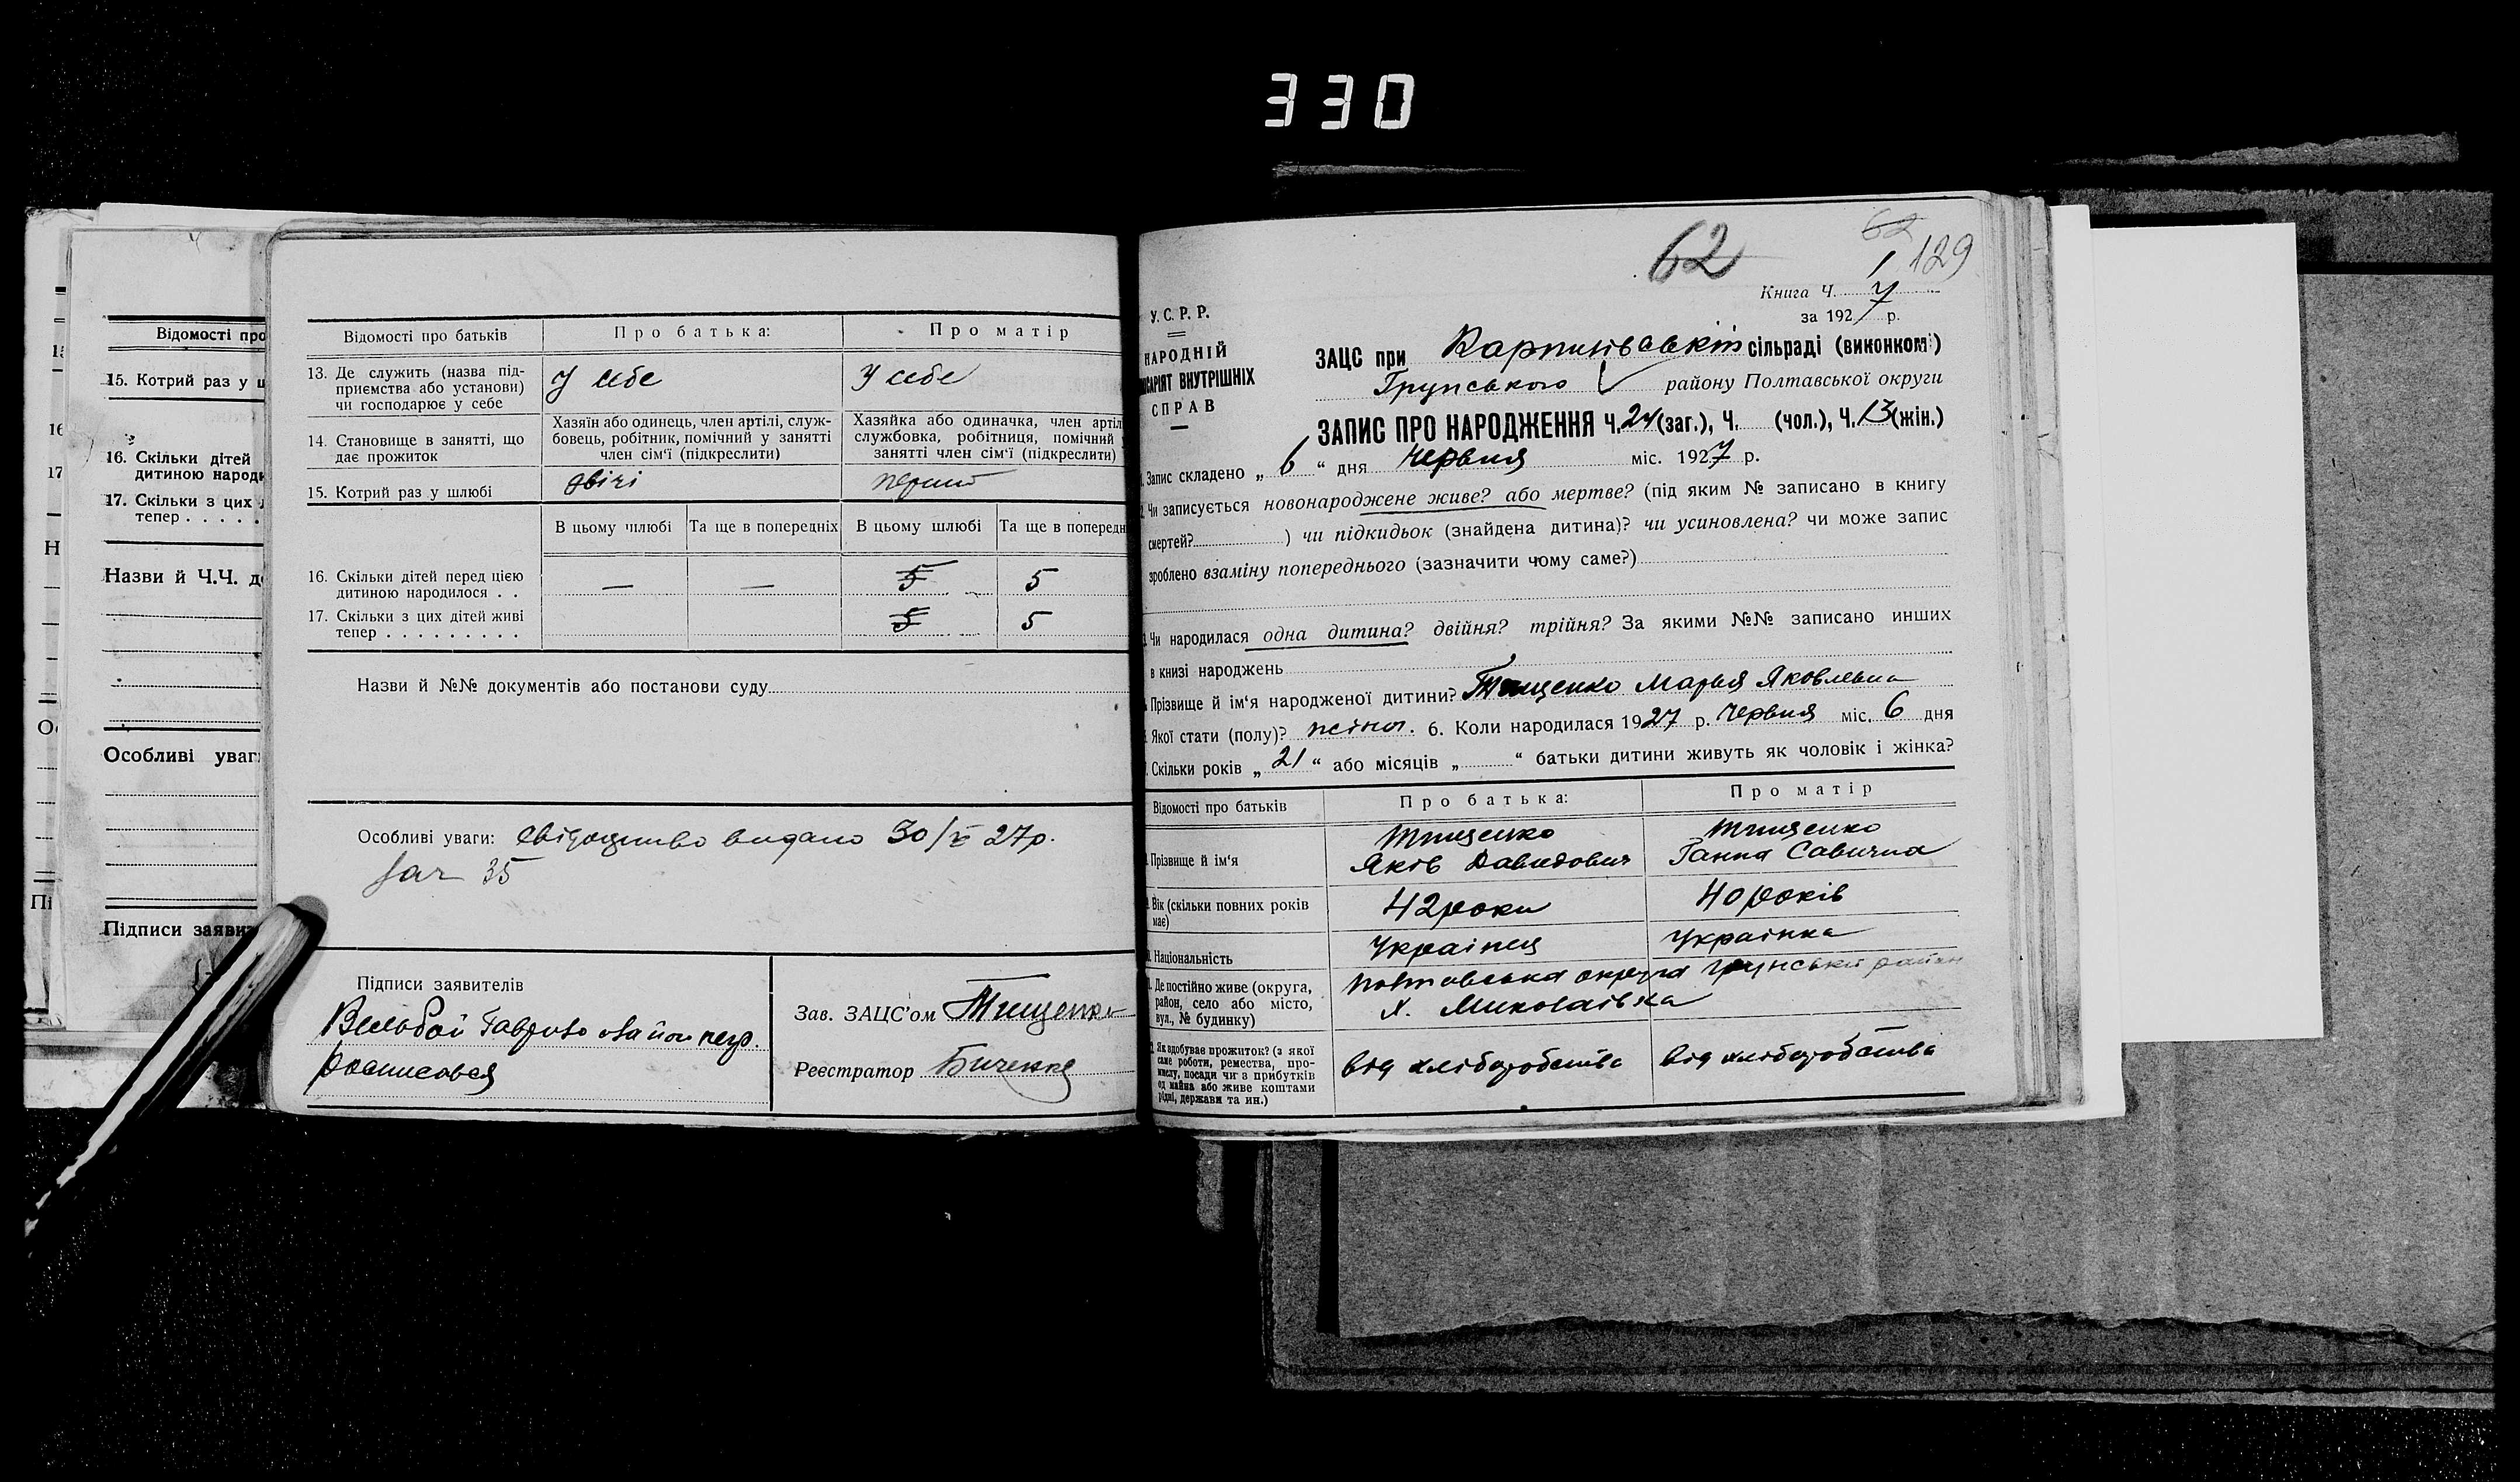 330
Відомості про
15. Котрий раз у ш
16. Скільки дітей
дитиною народи
17. Скільки з цих
тепер . . . . .
Назви й Ч.Ч. до
Особливі уваг
Підписи заяви
Відомості про батьків
Про батька:
Про матір
13. Де служить (назва під-
приємства або установи)
чи господарює у себе
У себе
У себе
14. Становище в занятті, що
дає прожиток
Хазяїн або одинець, член артілі, служ-
бовець, робітник, помічний у занятті
член сім'ї (підкреслити)
Хазяйка або одиначка, член артіл
службовка, робітниця, помічний у
занятті член сім'ї (підкреслити)
15. Котрий раз у шлюбі
двічі
перший
В цьому шлюбі
Та ще в попередніх
В цьому шлюбі
Та ще в попередн
16. Скільки дітей перед цією
дитиною народилося . .
— — 5 5
17. Скільки з цих дітей живі
тепер . . . . . . . . .
5 5
Назви й №№ документів або постанови суду
Особливі уваги: свідоцтво видано 30/VI 27р.
35
Підписи заявителів
розписався
Зав. ЗАЦС'ом Тищенко
Реєстратор Биченко
62
62
129
Книга Ч. 1
за 1927 р.
У.С.Р.Р.
НАРОДНІЙ
ІСАРІЯТ ВНУТРІШНІХ
СПРАВ
ЗАЦС при Карпилівській сільраді (виконкомі)
Грунського району Полтавської округи
ЗАПИС ПРО НАРОДЖЕННЯ Ч. 24 (заг.), Ч. (чол.), Ч. 13 (жін.)
Запис складено „ 6 “ дня Червня міс. 1927 р.
Чи записується новонароджене живе? або мертве? (під яким № записано в книгу
смертей? ) чи підкидьок (знайдена дитина)? чи усиновлена? чи може запис
зроблено взаміну попереднього (зазначити чому саме?)
Чи народилася одна дитина? двійня? трійня? За якими №№ записано инших
в книзі народжень
Прізвище й ім'я народженої дитини? Тищенко Марья Яковлевна
Якої стати (полу)? жіноч. 6. Коли народилася 1927 р. Червня міс. 6 дня
Скільки років „ 21 “ або місяців „ “ батьки дитини живуть як чоловік і жінка?
Відомості про батьків
Про батька:
Про матір
Прізвище й ім'я
Тищенко
Яків Давидович
Тищенко
Ганна Савична
Вік (скільки повних років
має)
42 роки
40 років
Національність
Українец
Українка
Де постійно живе (округа,
район, село або місто,
вул., № будинку)
Полтавська округа Грунський район
х. Миколаівка
Як здобуває прожиток? (з якої
саме роботи, ремества, про-
мислу, посади чи з прибутків
од майна або живе коштами
рідні, держави та ин.)
від хліборобства
від хліборобства